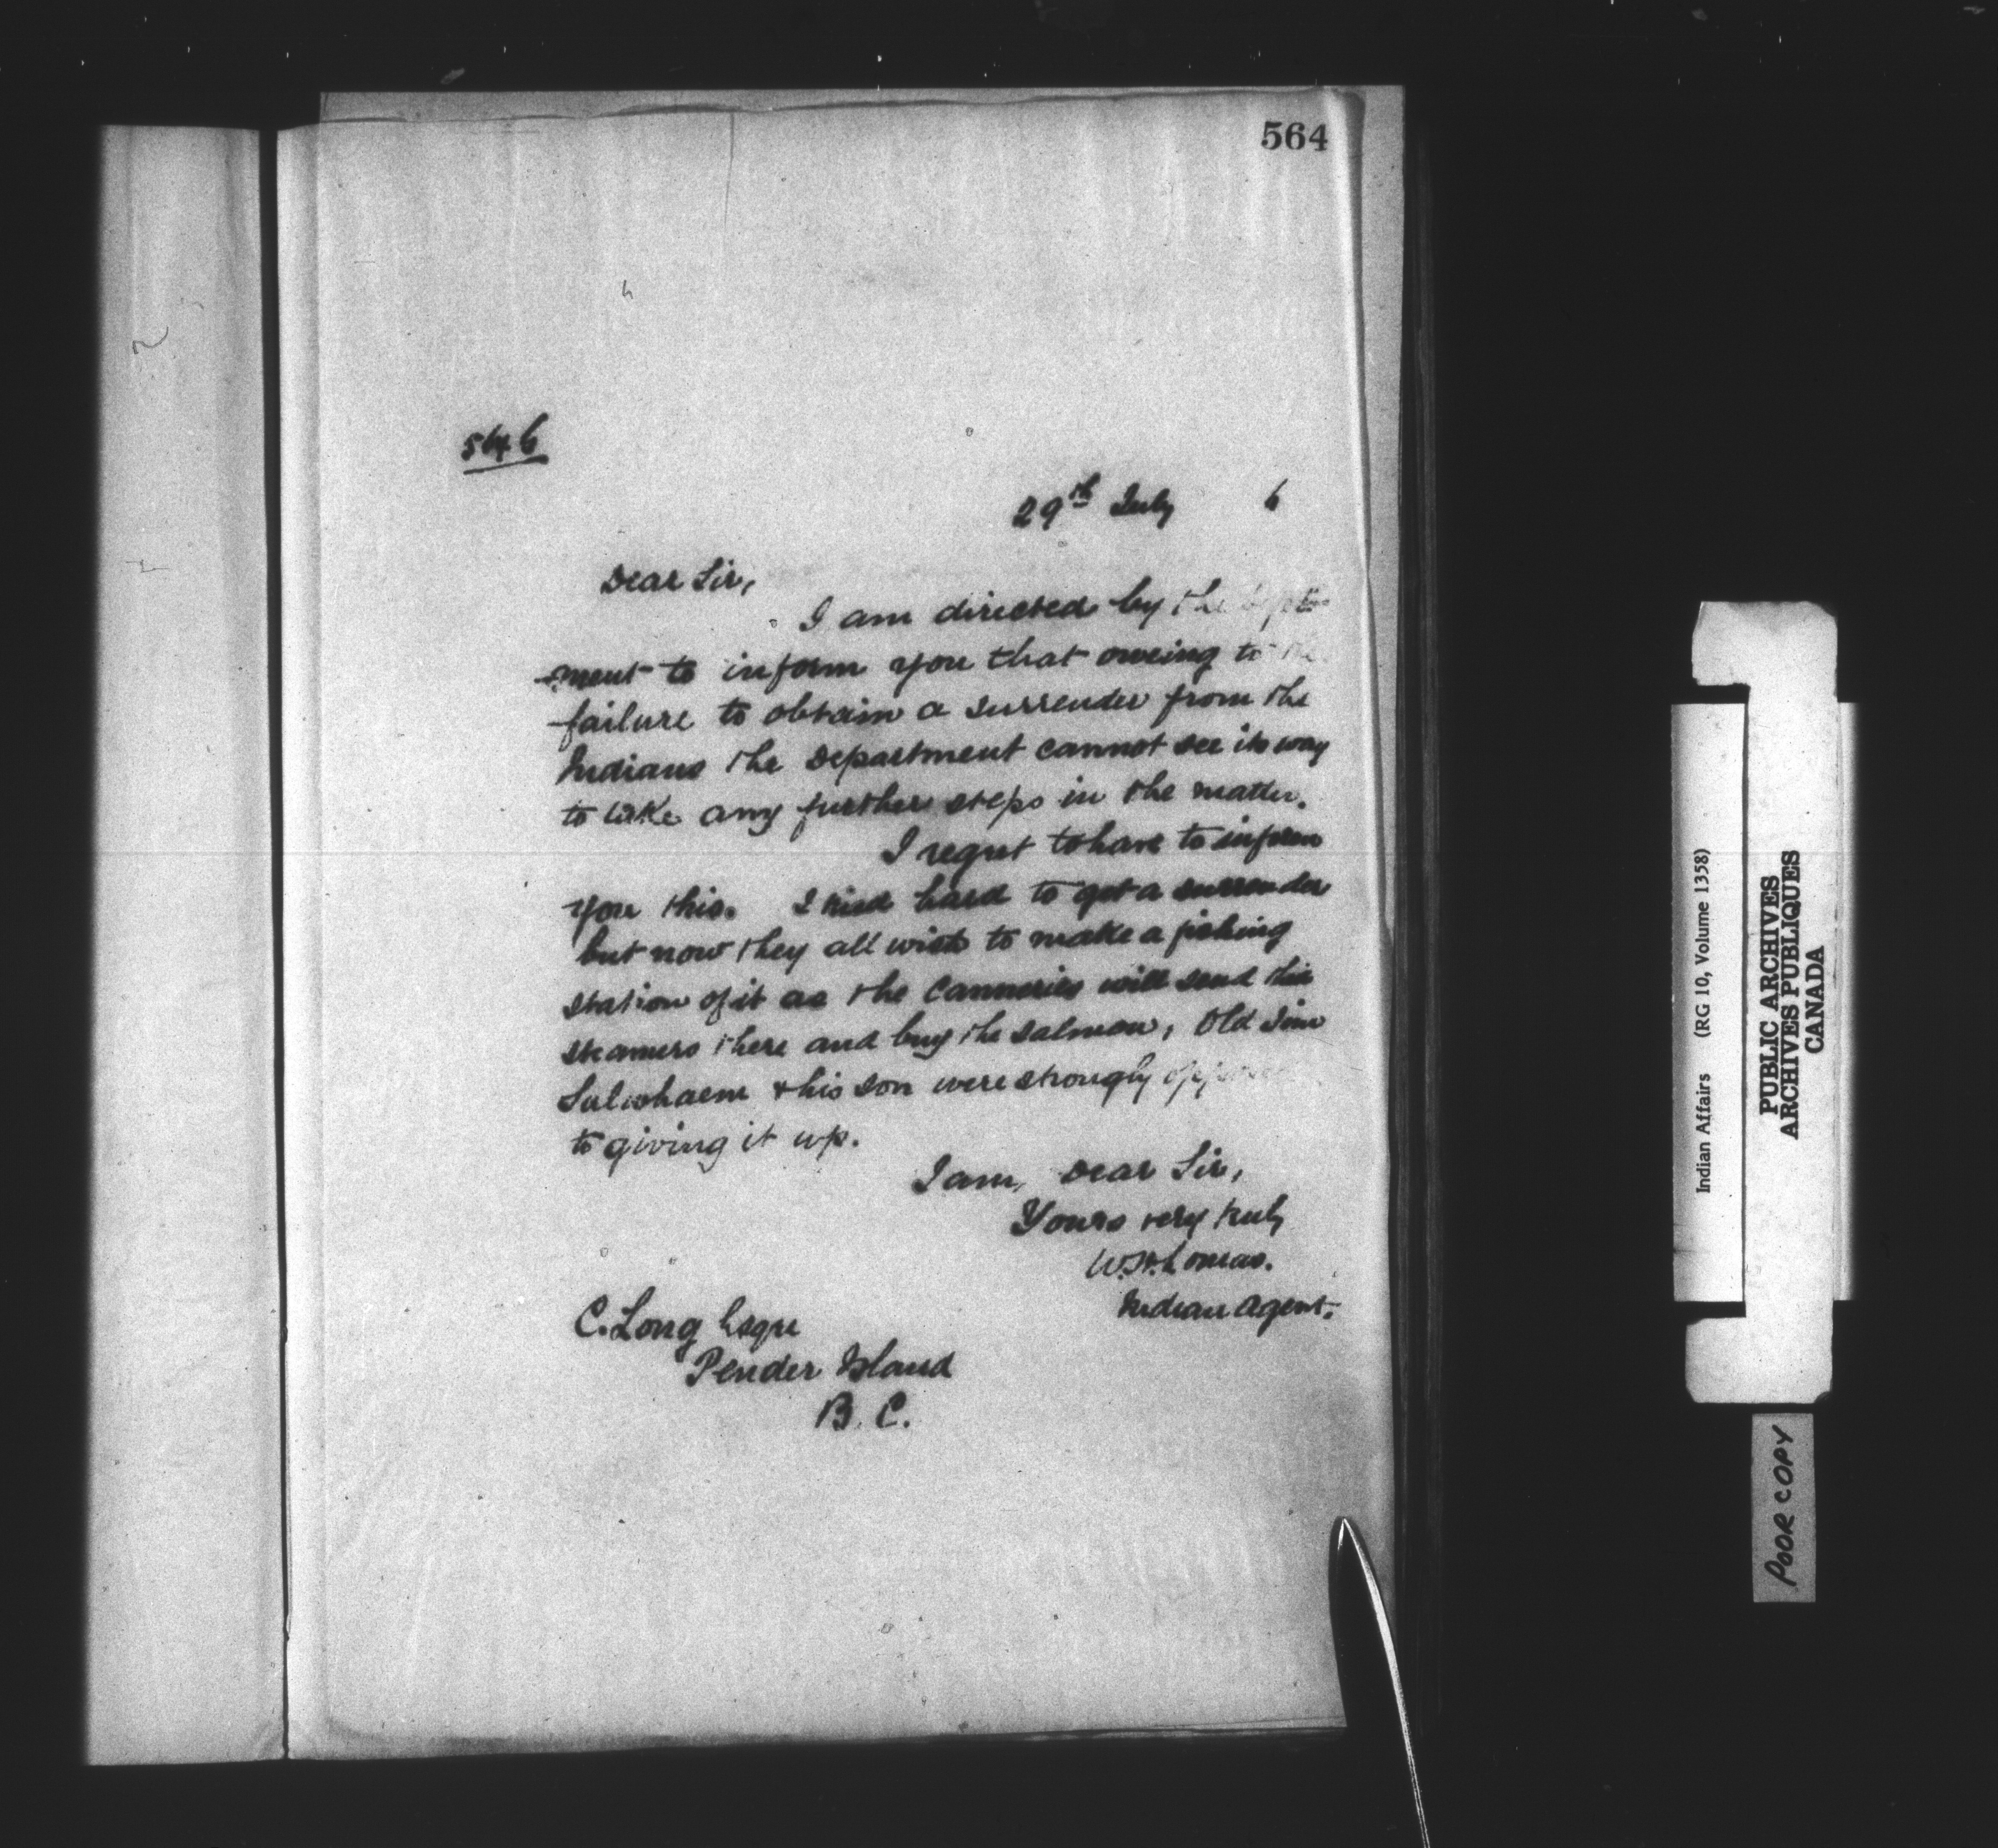 564
5646
29th July 6
Dear Sir,
I am directed by the Depart-
-ment to inform you that oweing to the
failure to obtain a surrender from the
Indians the Department cannot see its way
to take any further steps in the matter.
I regret to have to inform
you this. I tried hard to get a surrender
but now they all wish to make a fishing
station of it as the Canneries will send their
steamers there and buy the salmon, Old Jim
Sulwhaem & his son were strongly opposed
to giving it up.
I am, Dear Sir,
Yours very truly
W.H. Lomas.
Indian Agent.
C. Long Esqre
Pender Island
B. C.
Indian Affairs (RG 10, Volume 1358)
PUBLIC ARCHIVES
ARCHIVES PUBLIQUES
CANADA
POOR COPY